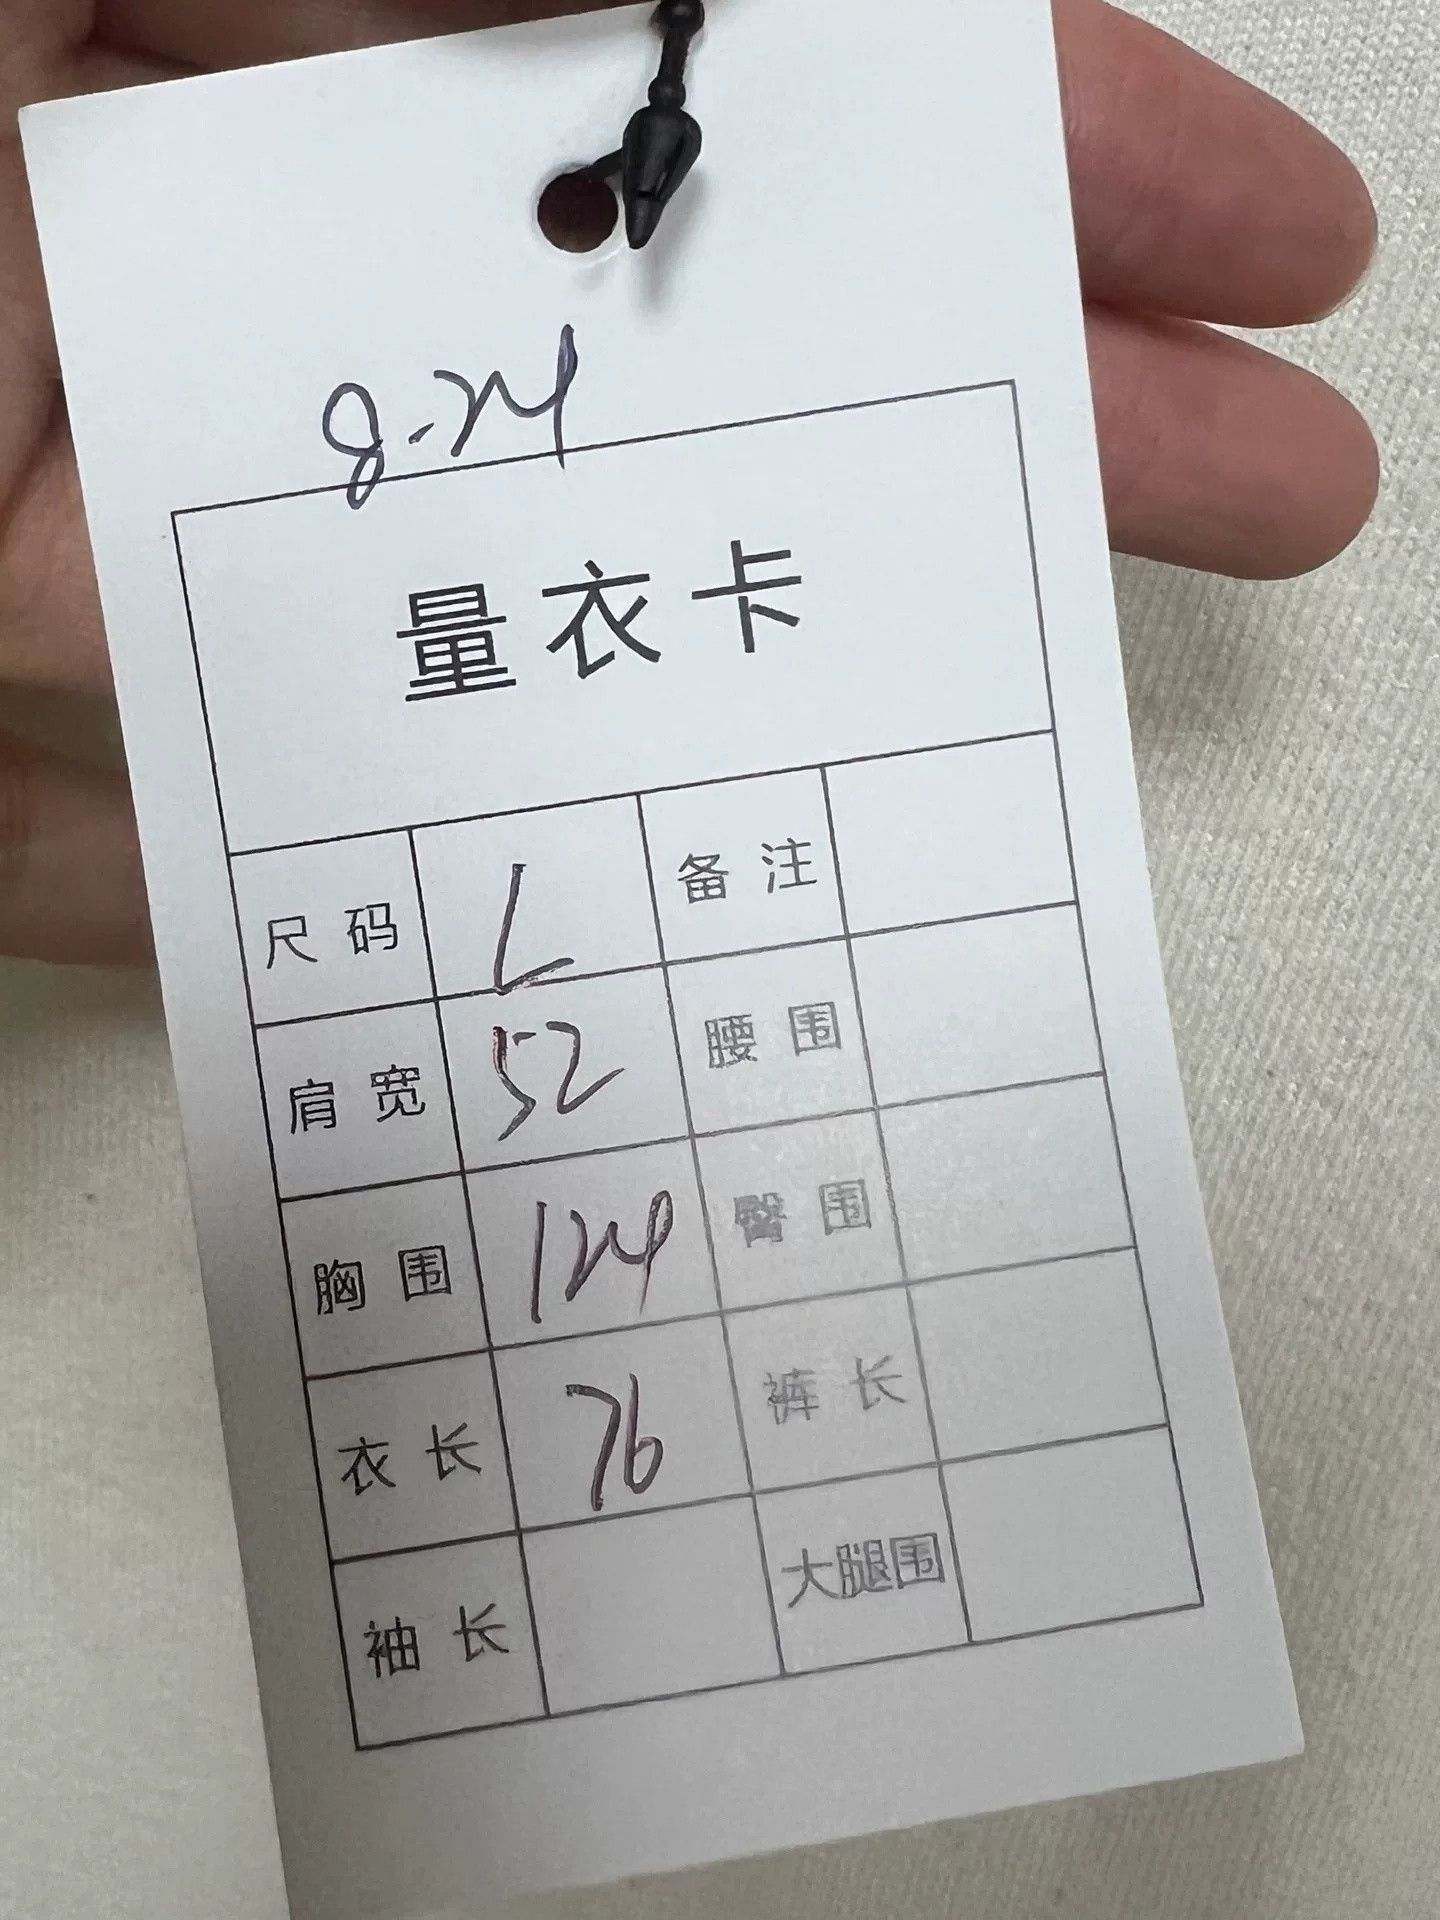 8.24
量衣卡
尺码 L 备注
肩宽 52 腰围
胸围 124 臀围
衣长 76 裤长
袖长 大腿围